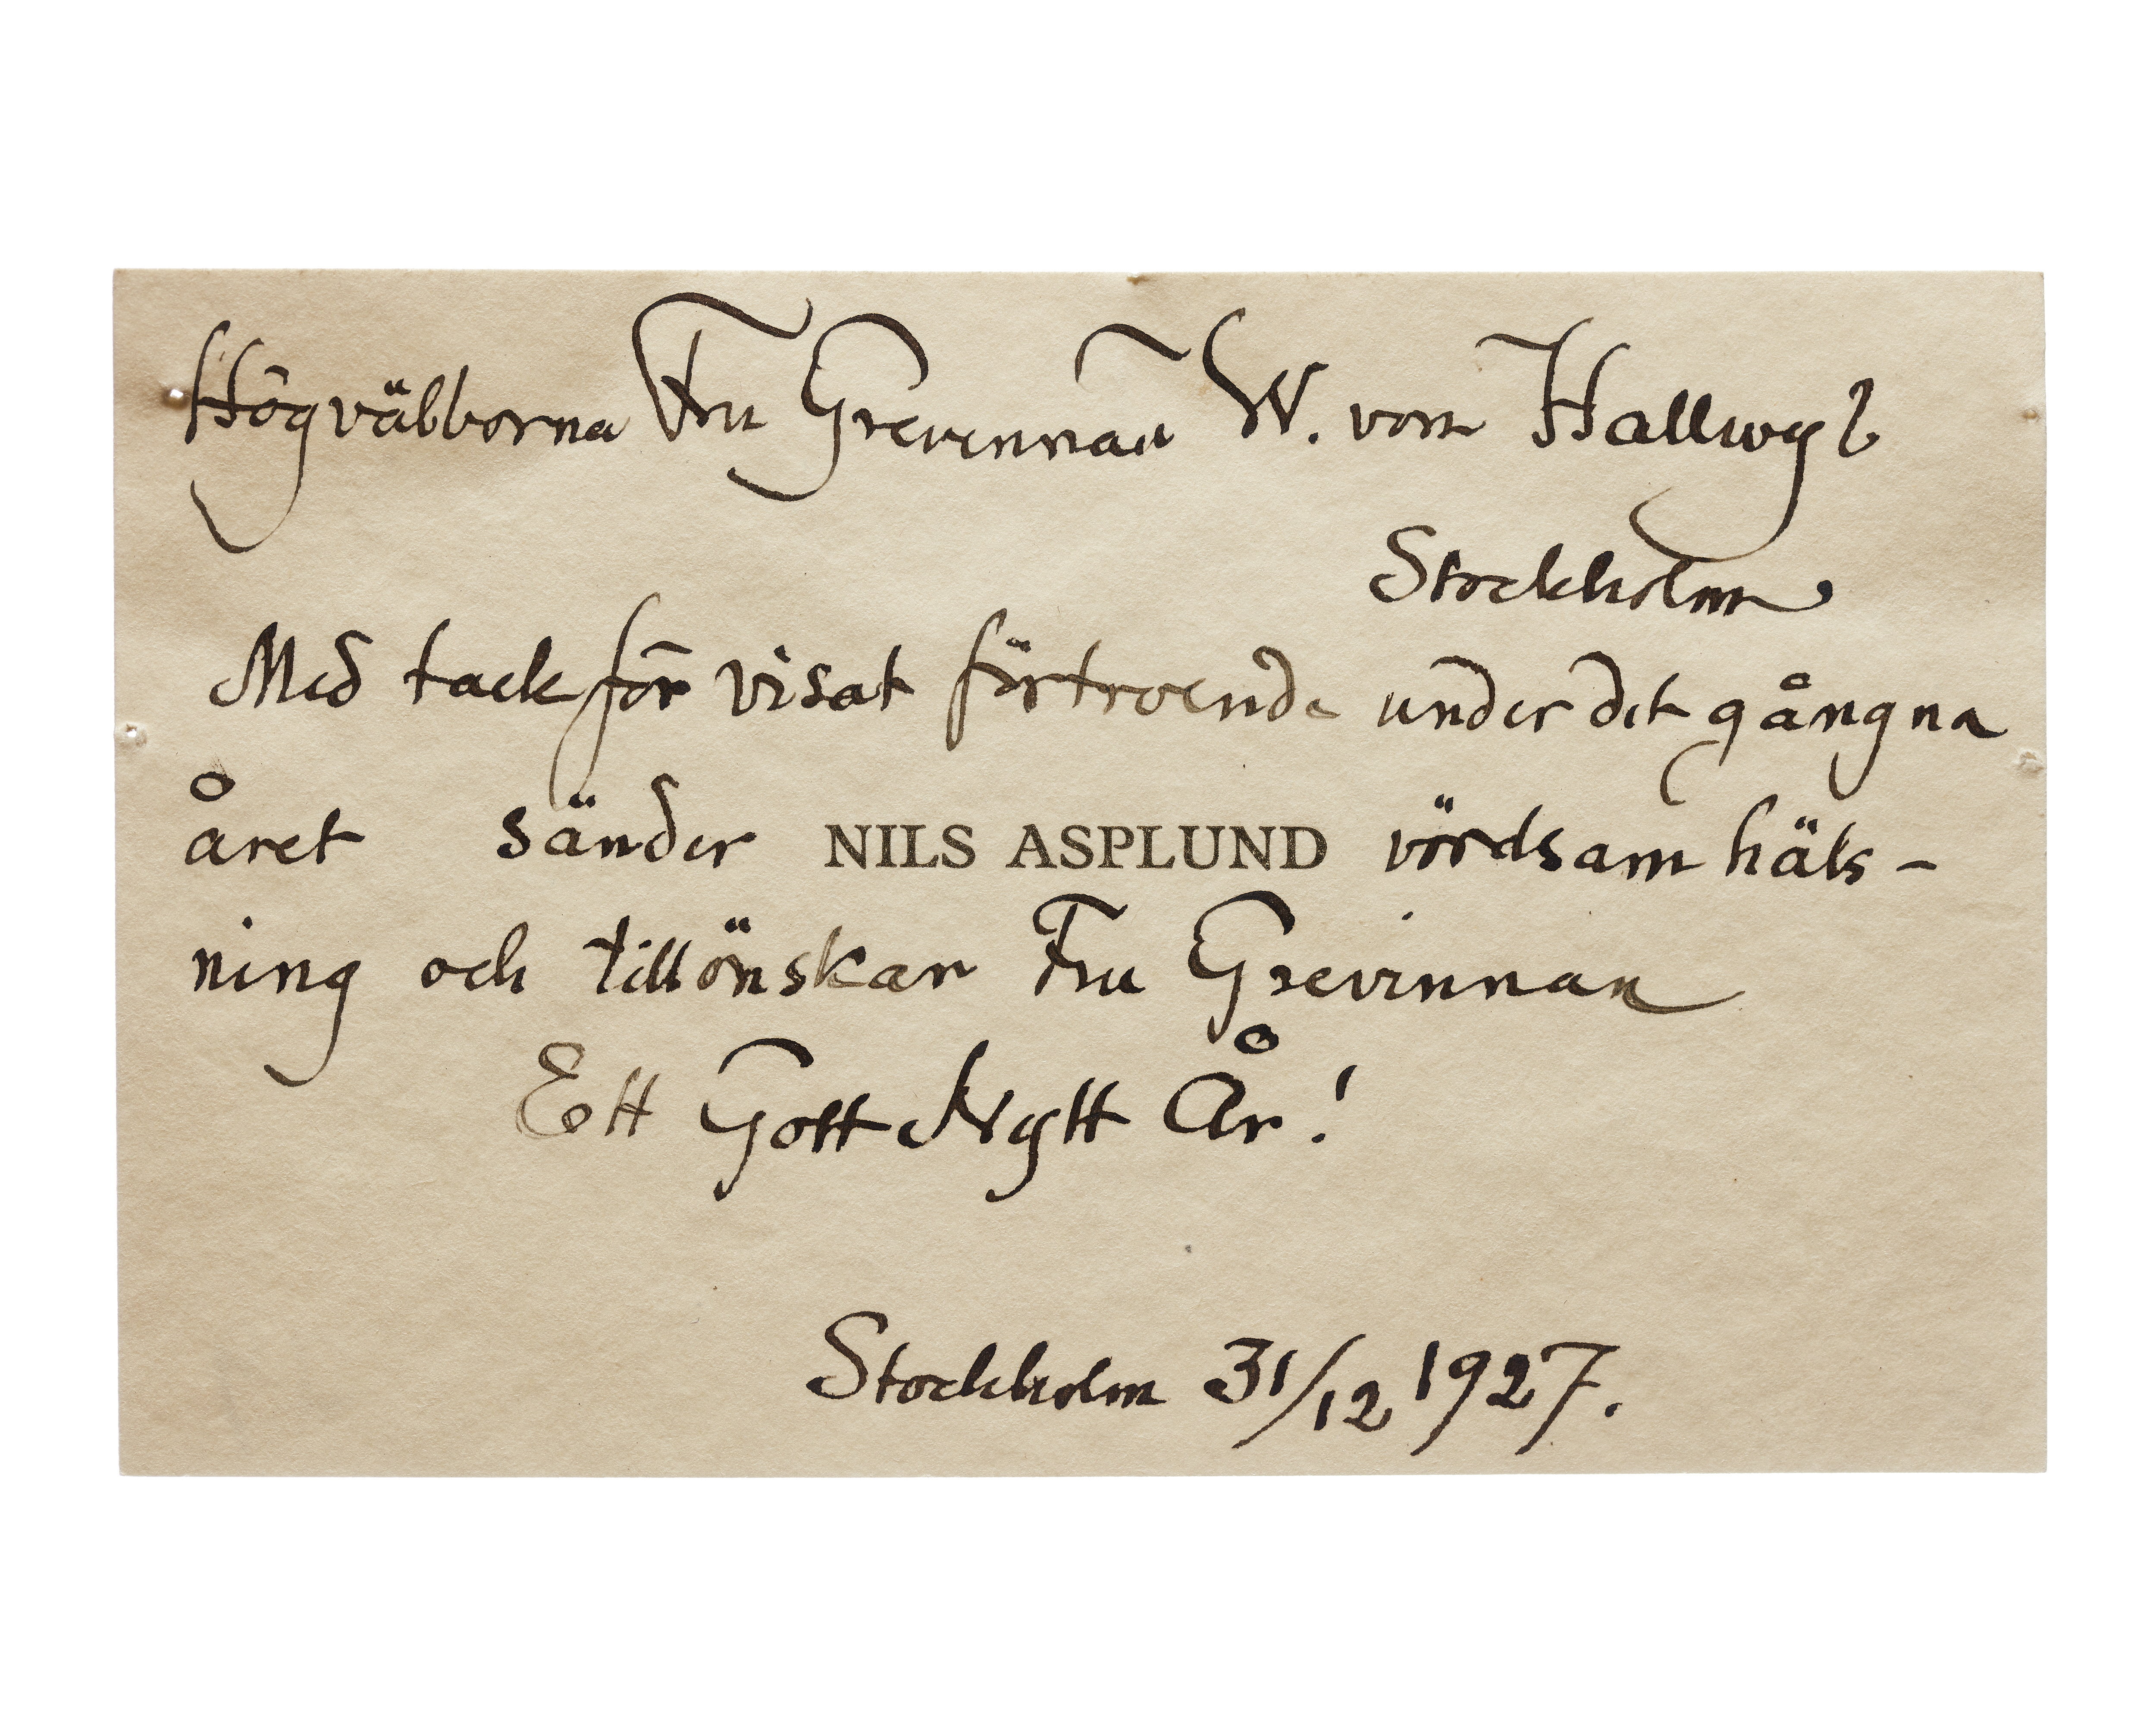 Högvälborna Fru Grevinnan W. von Hallwyl
Stockholm
Med tack för visat förtroende under det gångna
året sänder NILS ASPLUND vördsam häls-
ning och tillönskar Fru Grevinnan
Ett Gott Nytt År!
Stockholm 31/12 1927.